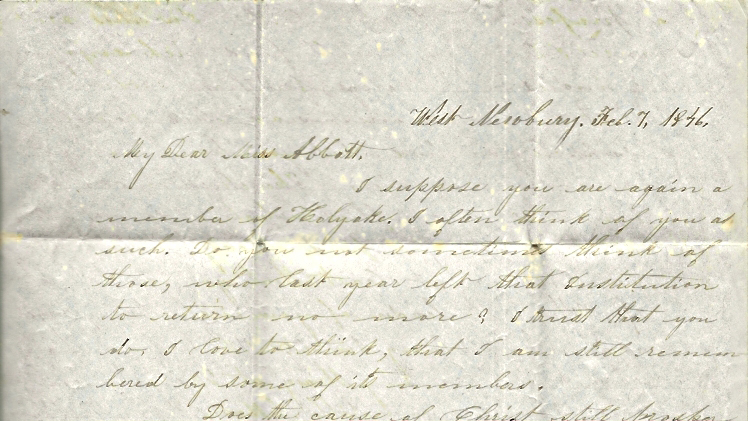 West Newbury. Feb. 7, 1846.
My Dear Miss Abbott.
I suppose you are again a
member of Holyoke. I often think of you as
such. Do you not sometimes think of
those, who last year left that Institution
to return no more? I trust that you
do, I love to think, that I am still remem
bered by some of its members.
Does the cause of Christ still prosper